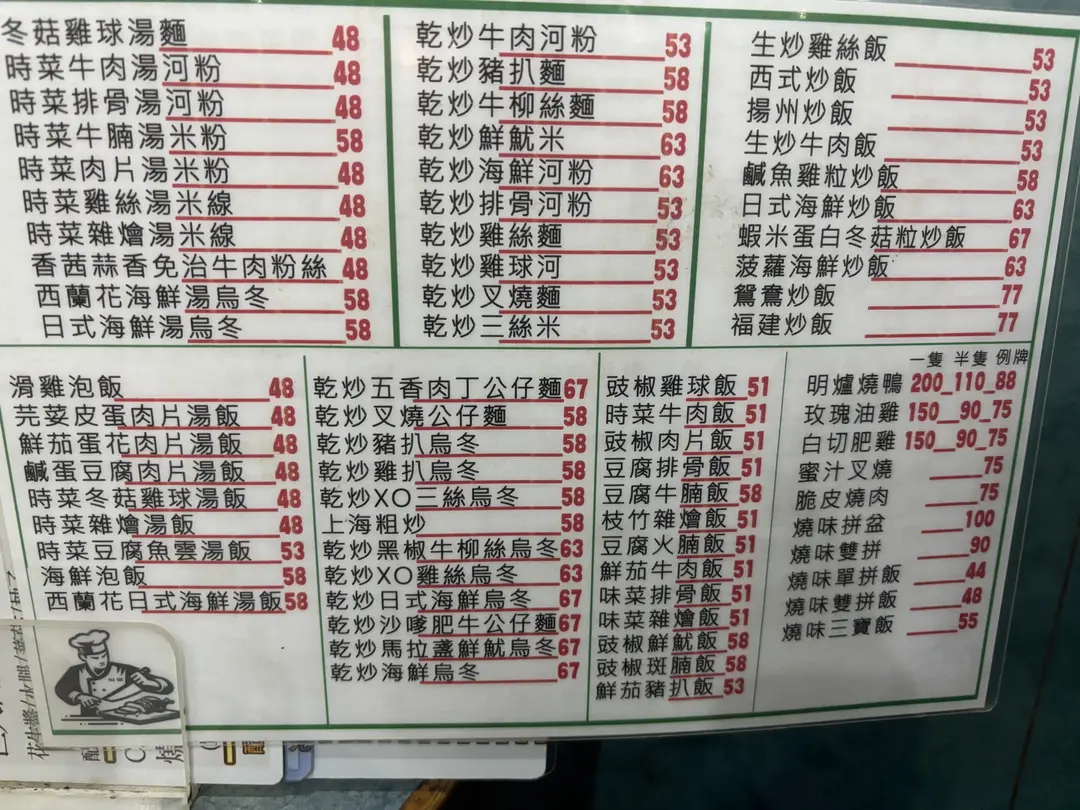 冬菇雞球湯麵 48
時菜牛肉湯河粉 48
時菜排骨湯河粉 48
時菜牛腩湯米粉 58
時菜肉片湯米粉 48
時菜雞絲湯米線 48
時菜雜燴湯米線 48
香茜蒜香免治牛肉粉絲 48
西蘭花海鮮湯烏冬 58
日式海鮮湯烏冬 58
乾炒牛肉河粉 53
乾炒豬扒麵 58
乾炒牛柳絲麵 58
乾炒鮮魷米 63
乾炒海鮮河粉 63
乾炒排骨河粉 53
乾炒雞絲麵 53
乾炒雞球河 53
乾炒叉燒麵 53
乾炒三絲米 53
生炒雞絲飯 53
西式炒飯 53
揚州炒飯 53
生炒牛肉飯 53
鹹魚雞粒炒飯 58
日式海鮮炒飯 63
蝦米蛋白冬菇粒炒飯 67
菠蘿海鮮炒飯 63
鴛鴦炒飯 77
福建炒飯 77
滑雞泡飯 48
芫荽皮蛋肉片湯飯 48
鮮茄蛋花肉片湯飯 48
鹹蛋豆腐肉片湯飯 48
時菜冬菇雞球湯飯 48
時菜雜燴湯飯 48
時菜豆腐魚雲湯飯 53
海鮮泡飯 58
西蘭花日式海鮮湯飯 58
乾炒五香肉丁公仔麵 67
乾炒叉燒公仔麵 58
乾炒豬扒烏冬 58
乾炒雞扒烏冬 58
乾炒XO三絲烏冬 58
上海粗炒 58
乾炒黑椒牛柳絲烏冬 63
乾炒XO雞絲烏冬 63
乾炒日式海鮮烏冬 67
乾炒沙嗲肥牛公仔麵 67
乾炒馬拉盞鮮魷烏冬 67
乾炒海鮮烏冬 67
豉椒雞球飯 51
時菜牛肉飯 51
豉椒肉片飯 51
豆腐排骨飯 51
豆腐牛腩飯 58
枝竹雜燴飯 51
豆腐火腩飯 51
鮮茄牛肉飯 51
味菜排骨飯 51
味菜雜燴飯 51
豉椒鮮魷飯 58
豉椒斑腩飯 58
鮮茄豬扒飯 53
一隻 半隻 例牌
明爐燒鴨 200 110 88
玫瑰油雞 150 90 75
白切肥雞 150 90 75
蜜汁叉燒 75
脆皮燒肉 75
燒味拼盆 100
燒味雙拼 90
燒味單拼飯 44
燒味雙拼飯 48
燒味三寶飯 55